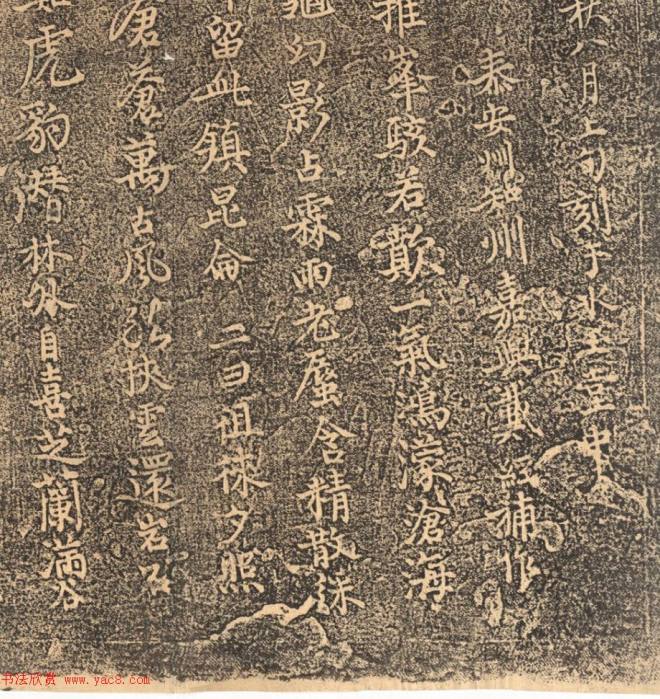 秋八月上旬刻于水
泰安州知州嘉興戴經補作
推峯駭若欺一氣鴻濛滄海
幻影占霖雨老蜃含精散
留此鎮昆侖 二曰徂徠夕照
蒼蒼萬古風 扶雲還
虎豹潛林外自喜芝蘭滿谷
书法欣赏 www.yac8.com